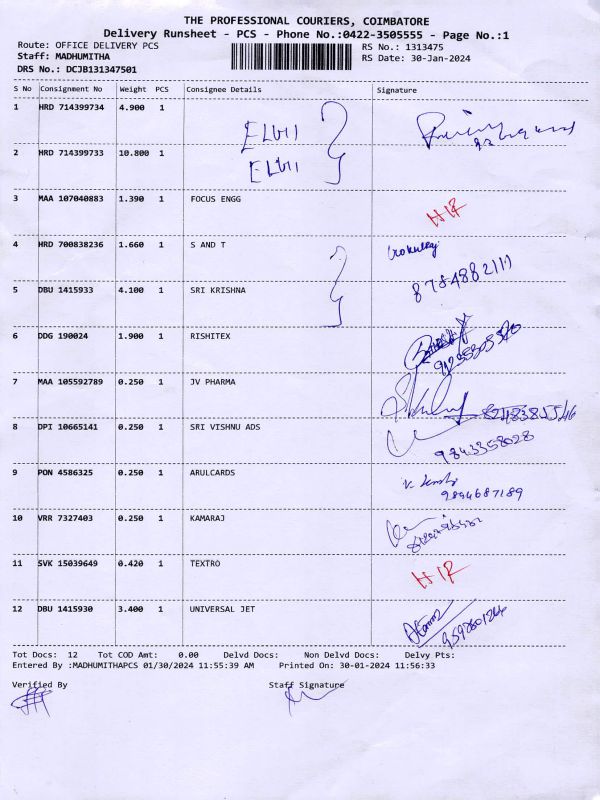 THE PROFESSIONAL COURIERS, COIMBATORE
Delivery Runsheet - PCS - Phone No.:0422-3505555 - Page No.:1
Route: OFFICE DELIVERY PCS
RS No.: 1313475
Staff: MADHUMITHA
RS Date: 30-Jan-2024
DRS No.: DCJB131347501
S No Consignment No Weight PCS Consignee Details Signature
1 HRD 714399734 4.900 1 ELGI
2 HRD 714399733 10.800 1 ELGI
3 MAA 107040883 1.390 1 FOCUS ENGG HIF
4 HRD 700838236 1.660 1 S AND T
8784882111
5 DBU 1415933 4.100 1 SRI KRISHNA
6 DDG 190024 1.900 1 RISHITEX
7 MAA 105592789 0.250 1 JV PHARMA
8 DPI 10665141 0.250 1 SRI VISHNU ADS
9843358028
9 PON 4586325 0.250 1 ARULCARDS
9894687189
10 VRR 7327403 0.250 1 KAMARAJ
11 SVK 15039649 0.420 1 TEXTRO HIF
12 DBU 1415930 3.400 1 UNIVERSAL JET
Tot Docs: 12 Tot COD Amt: 0.00 Delvd Docs: Non Delvd Docs: Delvy Pts:
Entered By :MADHUMITHAPCS 01/30/2024 11:55:39 AM Printed On: 30-01-2024 11:56:33
Verified By Staff Signature